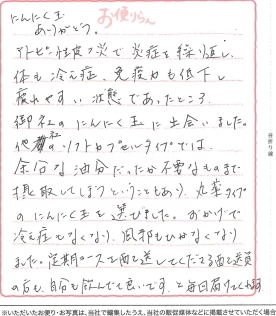 にんにく玉
ありがとう。
お便りらん
アトピー性皮フ炎で炎症を繰り返し、
体も冷え症、免疫力も低下し
疲れやすい状態であったところ
御社のにんにく玉に出会いました。
他社のソフトカプセルタイプでは、
余分な油分だったか不要なものまで
摂取してしまうということもあり、丸薬タイプ
のにんにく玉を選びました。おかげで
冷え症でなくなり、風邪もひかなくなり
ました。定期コースで
の方も、自分も飲んでて良いです。と毎回届けてくれます
音折り線
※いただいたお便り・お写真は、当社で編集したうえ、当社の販促媒体などに掲載させていただく場合